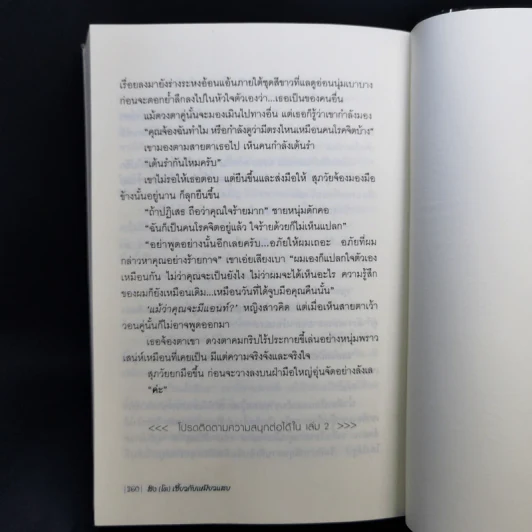 เรื่อยลงมายังร่างระหงอ้อนแอ้นภายใต้ชุดสีขาวที่แลดูอ่อนนุ่มเบาบาง
ก่อนจะตอกย้ำลึกลงไปในหัวใจตัวเองว่า...เธอเป็นของคนอื่น
แม้ดวงตาคู่นั้นจะมองเมินไปทางอื่น แต่เธอก็รู้ว่าเขากำลังมอง
“คุณจ้องฉันทำไม หรือกำลังดูว่ามีตรงไหนเหมือนคนโรคจิตบ้าง”
เขามองตามสายตาเธอไป เห็นคนกำลังเต้นรำ
“เต้นรำกันไหมครับ”
เขาไม่รอให้เธอตอบ แต่ยืนขึ้นและส่งมือให้ สุภวัยจ้องมองมือ
ข้างนั้นอยู่นาน ก็ลุกยืนขึ้น
“ถ้าปฏิเสธ ถือว่าคุณใจร้ายมาก” ชายหนุ่มดักคอ
“ฉันก็เป็นคนโรคจิตอยู่แล้ว ใจร้ายด้วยก็ไม่เห็นแปลก”
“อย่าพูดอย่างนั้นอีกเลยครับ...อภัยให้ผมเถอะ อภัยที่ผม
กล่าวหาคุณอย่างร้ายกาจ” เขาเอ่ยเสียงเบา “ผมเองก็แปลกใจตัวเอง
เหมือนกัน ไม่ว่าคุณจะเป็นยังไง ไม่ว่าผมจะได้เห็นอะไร ความรู้สึก
ของผมก็ยังเหมือนเดิม...เหมือนวันที่ได้จูบมือคุณคืนนั้น”
‘แม้ว่าคุณจะมีแอนท์?’ หญิงสาวคิด แต่เมื่อเห็นสายตาเว้า
วอนคู่นั้นก็ไม่อาจพูดออกมา
เธอจ้องตาเขา ดวงตาคมกริบไร้ประกายขี้เล่นอย่างหนุ่มพราว
เสน่ห์เหมือนที่เคยเป็น มีแต่ความจริงจังและจริงใจ
สุภวัยยกมือขึ้น ก่อนจะวางลงบนฝ่ามือใหญ่อุ่นจัดอย่างลังเล
“ค่ะ”
<<< โปรดติดตามความสนุกต่อได้ใน เล่ม 2 >>>